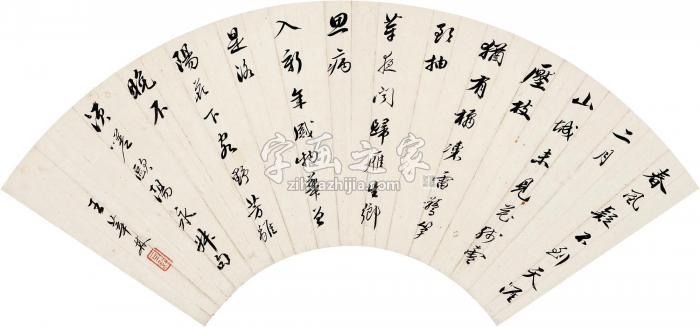 春風疑不到天涯
二月
山城未見花殘雪
壓枝
猶有橘凍雷驚笋
欲抽
芽夜聞歸雁生鄉
思病
入新年感物華曾
是洛
陽花下客野芳雖
晚不
須嗟歐陽永叔句
王
字画之家
zihuazhijia.com